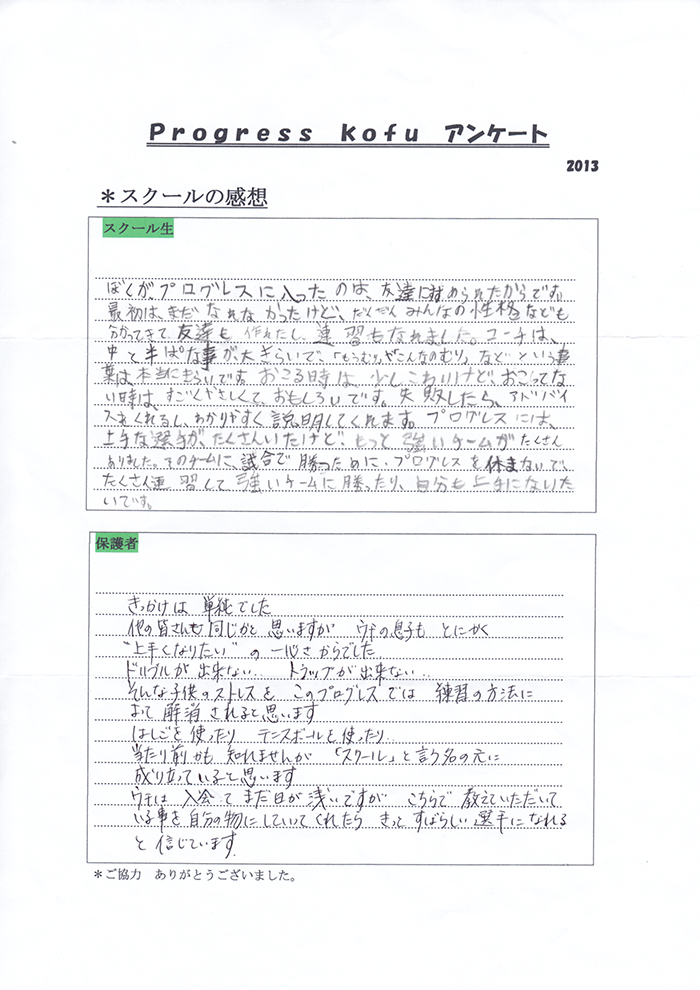 Progress kofu アンケート
2013
＊スクールの感想
スクール生
ぼくが、プログレスに入ったのは、友達に進められたからです。
最初は、まだなれなかったけど、だんだんみんなの性格なども
分かってきて、友達も作れたし、連習もなれました。コーチは、
中と半ぱな事が、大きらいで、「もうむり。」「そんなのむり」などという言
葉は、本当にきらいです。おこる時は、少しこわいけど、おこってな
い時は、すごくやさしくて、おもしろいです。失敗したら、アドバイ
スをくれるし、わかりやすく説明してくれます。プログレスには、
上手な選手が、たくさんいたけど、もっと強いチームがたくさん
ありました。そのチームに、試合で勝つために、プログレスを休まないで、
たくさん連習して強いチームに勝ったり、自分も上手になりた
いです。
保護者
きっかけは 単純でした
他の皆さんも同じかと思いますが ウチの息子も とにかく
"上手くなりたい" の一心さからでした
ドリブルが出来ない.. トラップが出来ない..
そんな子供のストレスを このプログレスでは 練習の方法に
よって解消されると思います
はしごを使ったり テニスボールを使ったり..
当たり前かも知れませんが 「スクール」と言う名の元に
成り立っていると思います
ウチは 入会して まだ日が浅いですが こちらで教えていただいて
いる事を自分の物にしていってくれたら きっと すばらしい選手になれる
と信じています.
＊ご協力 ありがとうございました。